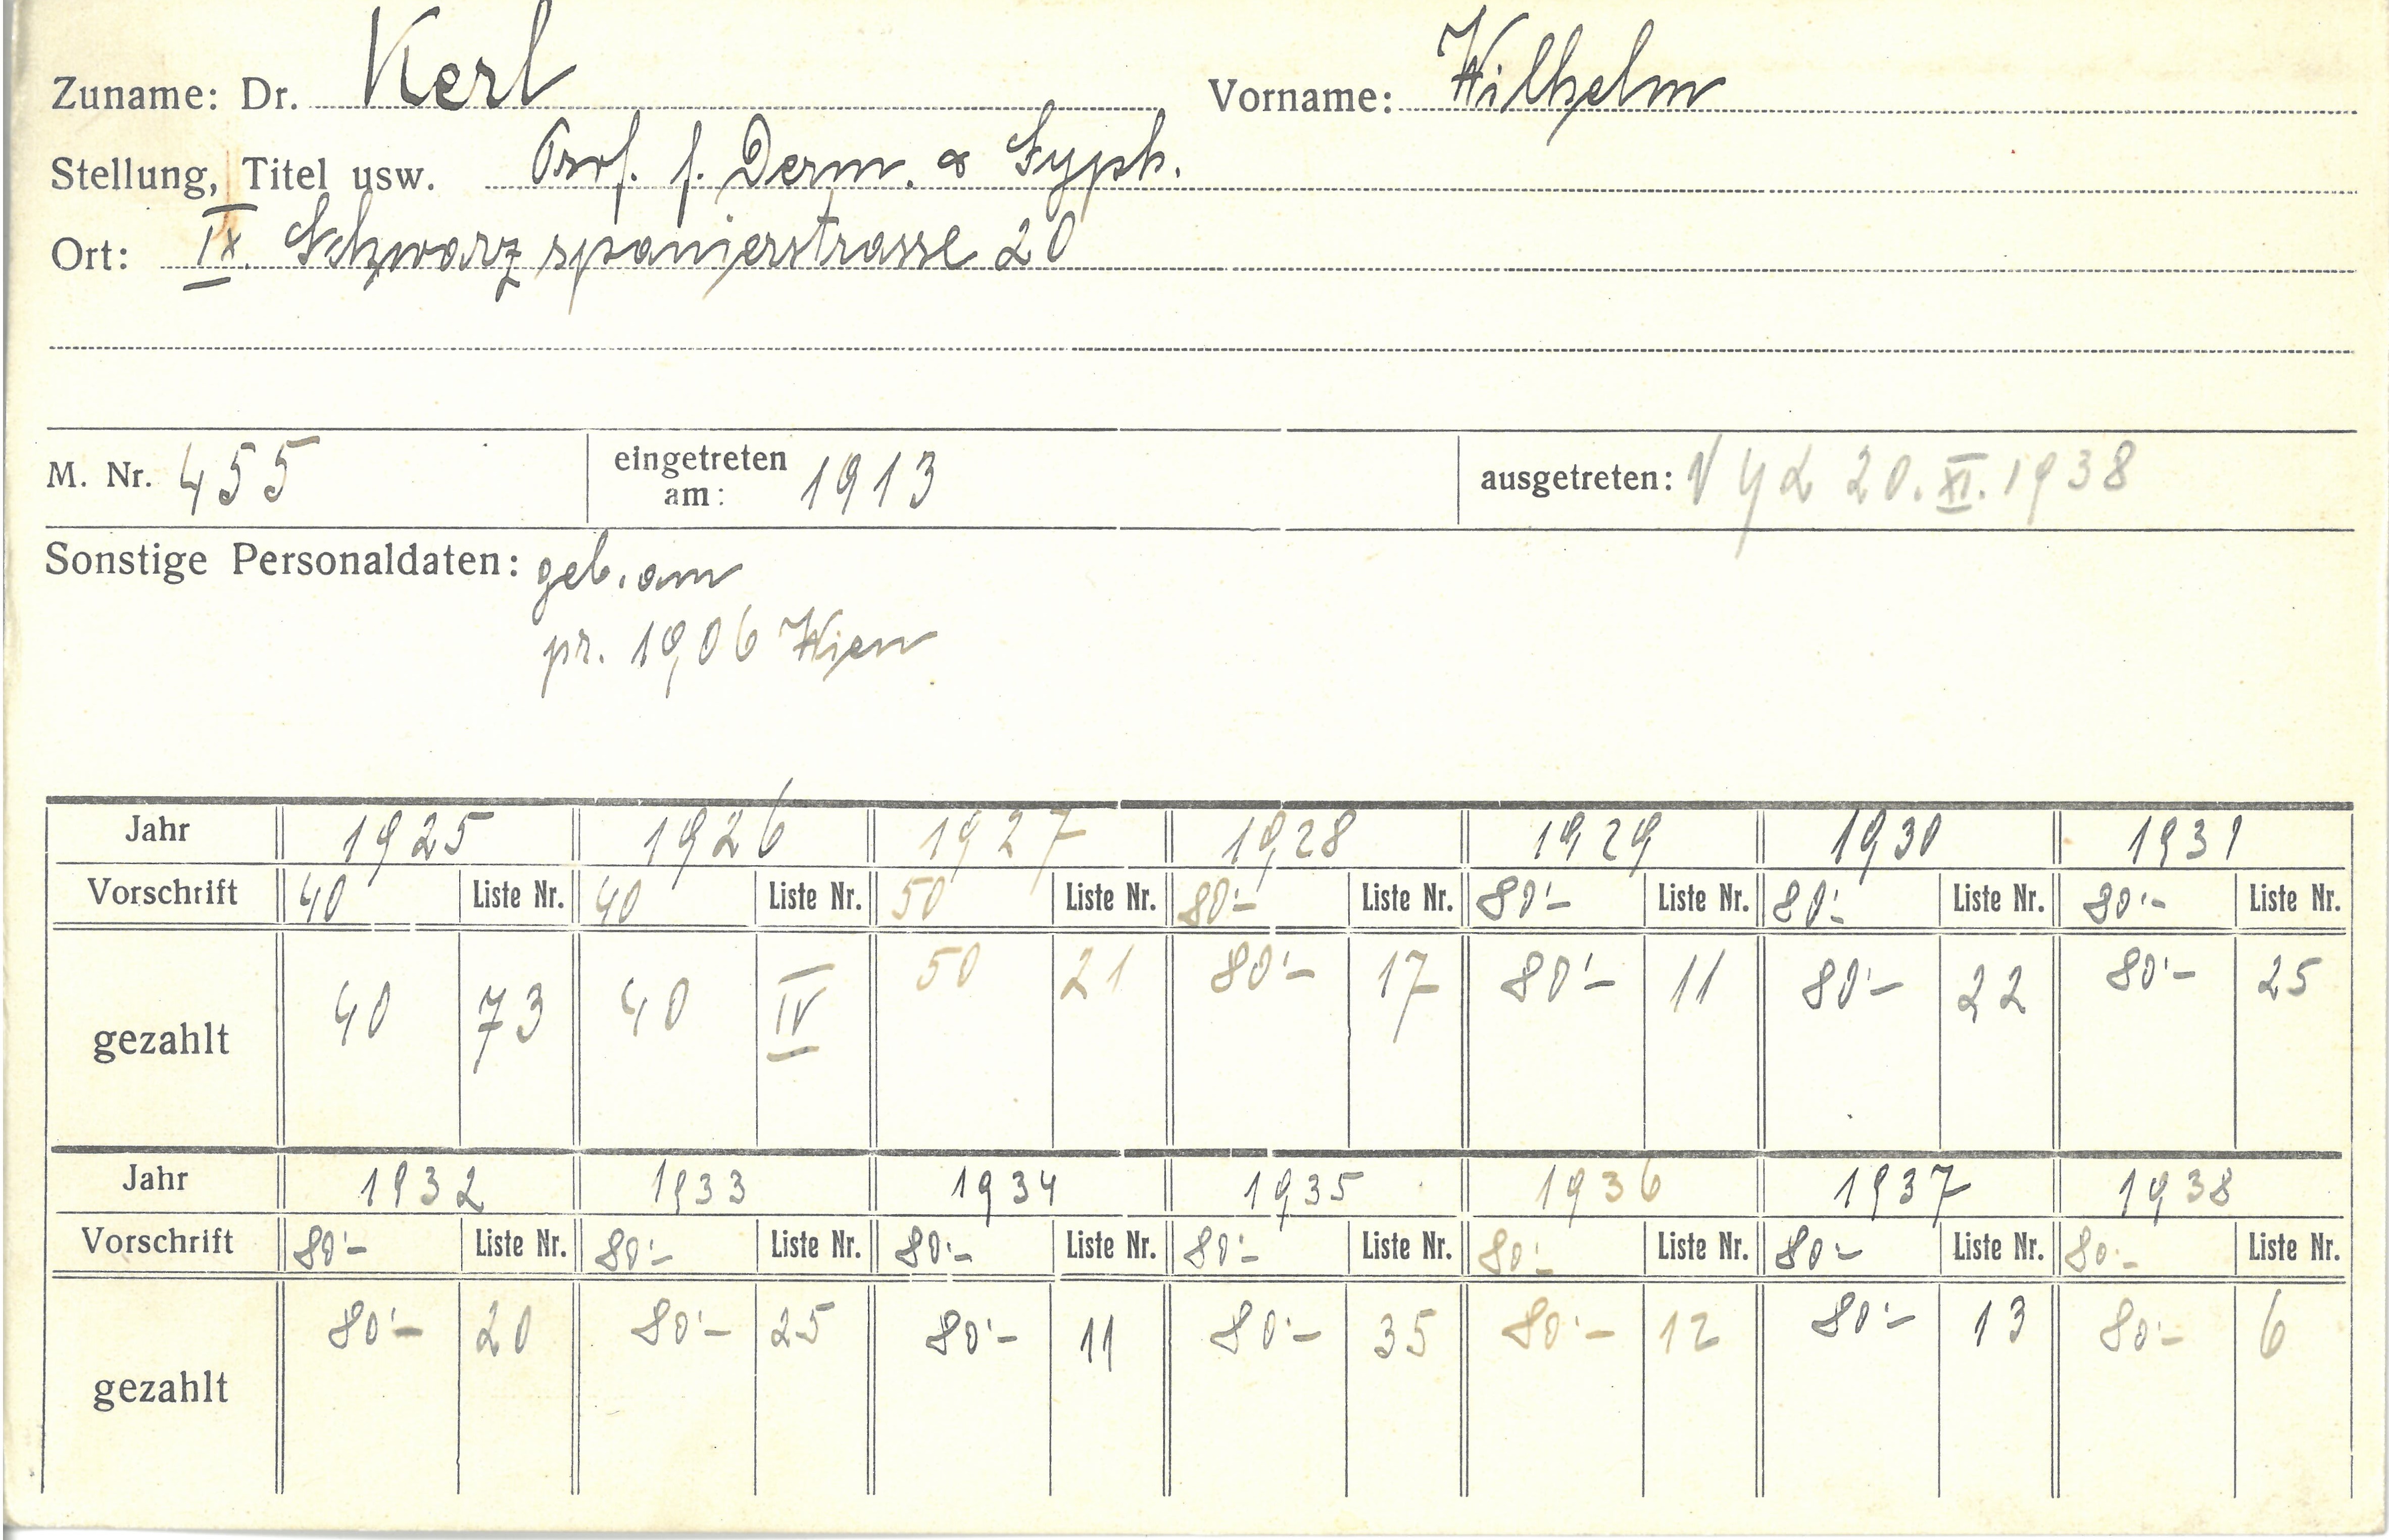 Zuname: Dr. Kerl Vorname: Wilhelm
Stellung, Titel usw. Prof. f. Derm. & Syph.
Ort: IX. Schwarzspanierstrasse 20
M. Nr. 455 eingetreten am: 1913 ausgetreten: 20. XI. 1938
Sonstige Personaldaten: geb. am
pr. 1906 Wien
Jahr 1925 1926 1927 1928 1929 1930 1931
Vorschrift 40 Liste Nr. 40 Liste Nr. 50 Liste Nr. 80'- Liste Nr. 80'- Liste Nr. 80'- Liste Nr. 80'- Liste Nr.
gezahlt 40 73 40 IV 50 21 80'- 17 80'- 11 80'- 22 80'- 25
Jahr 1932 1933 1934 1935 1936 1937 1938
Vorschrift 80'- Liste Nr. 80'- Liste Nr. 80'- Liste Nr. 80'- Liste Nr. 80'- Liste Nr. 80'- Liste Nr. 80'- Liste Nr.
gezahlt 80'- 20 80'- 25 80'- 11 80'- 35 80'- 12 80'- 13 80'- 6